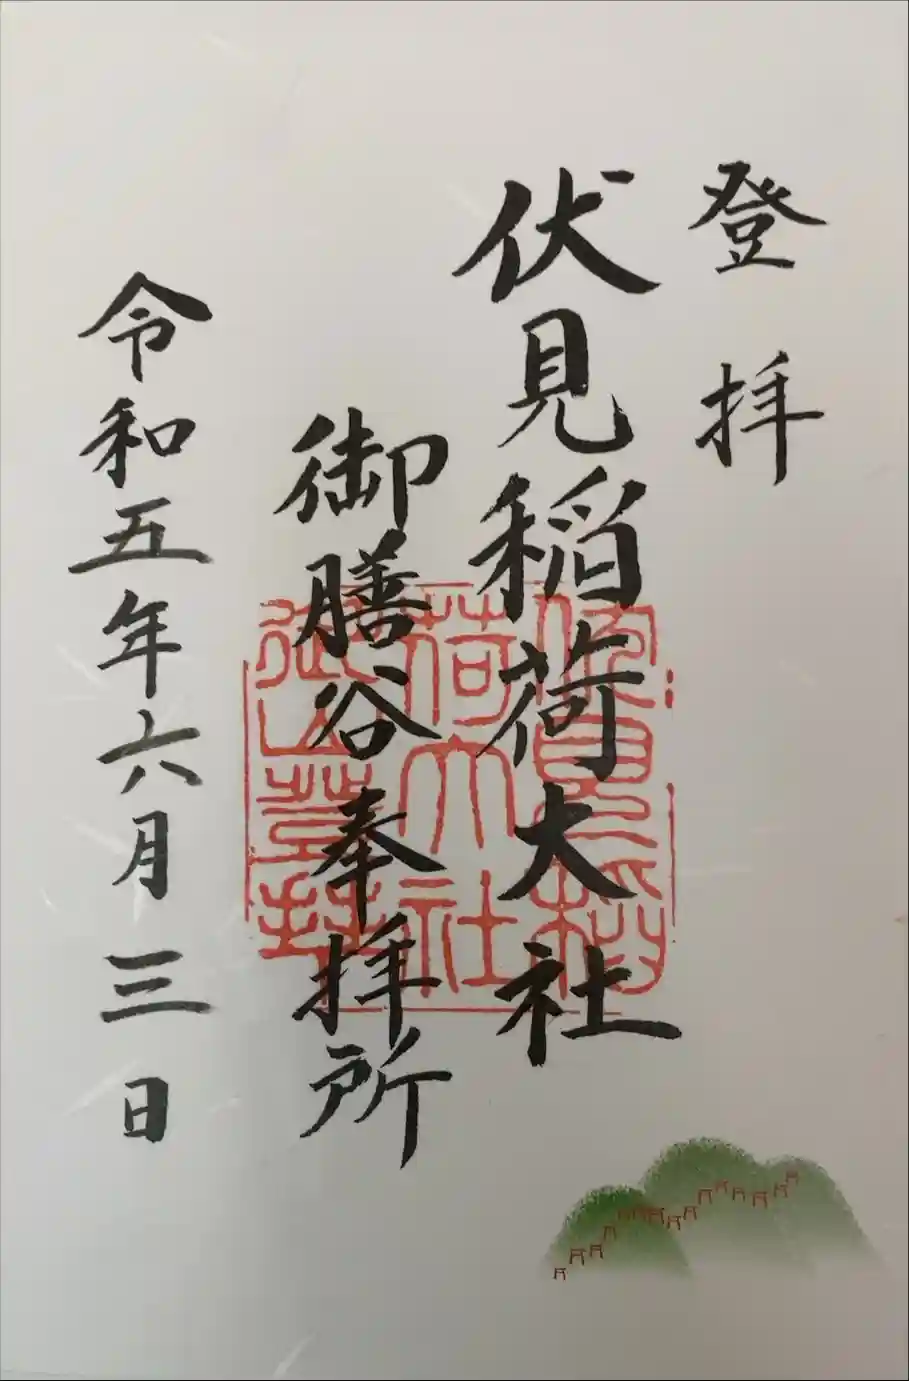 登拝
伏見稲荷大社
御膳谷奉拝所
令和五年六月三日
伏見稲
荷大社
御山登拝